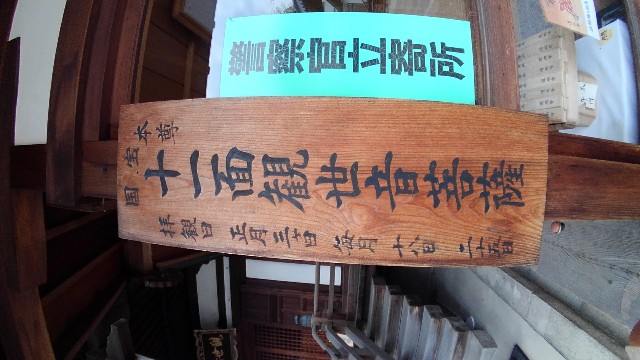 警察官立寄所
国宝
本尊
十一面観世音菩薩
拝観日 正月三ヶ日 毎月十八日 二十五日